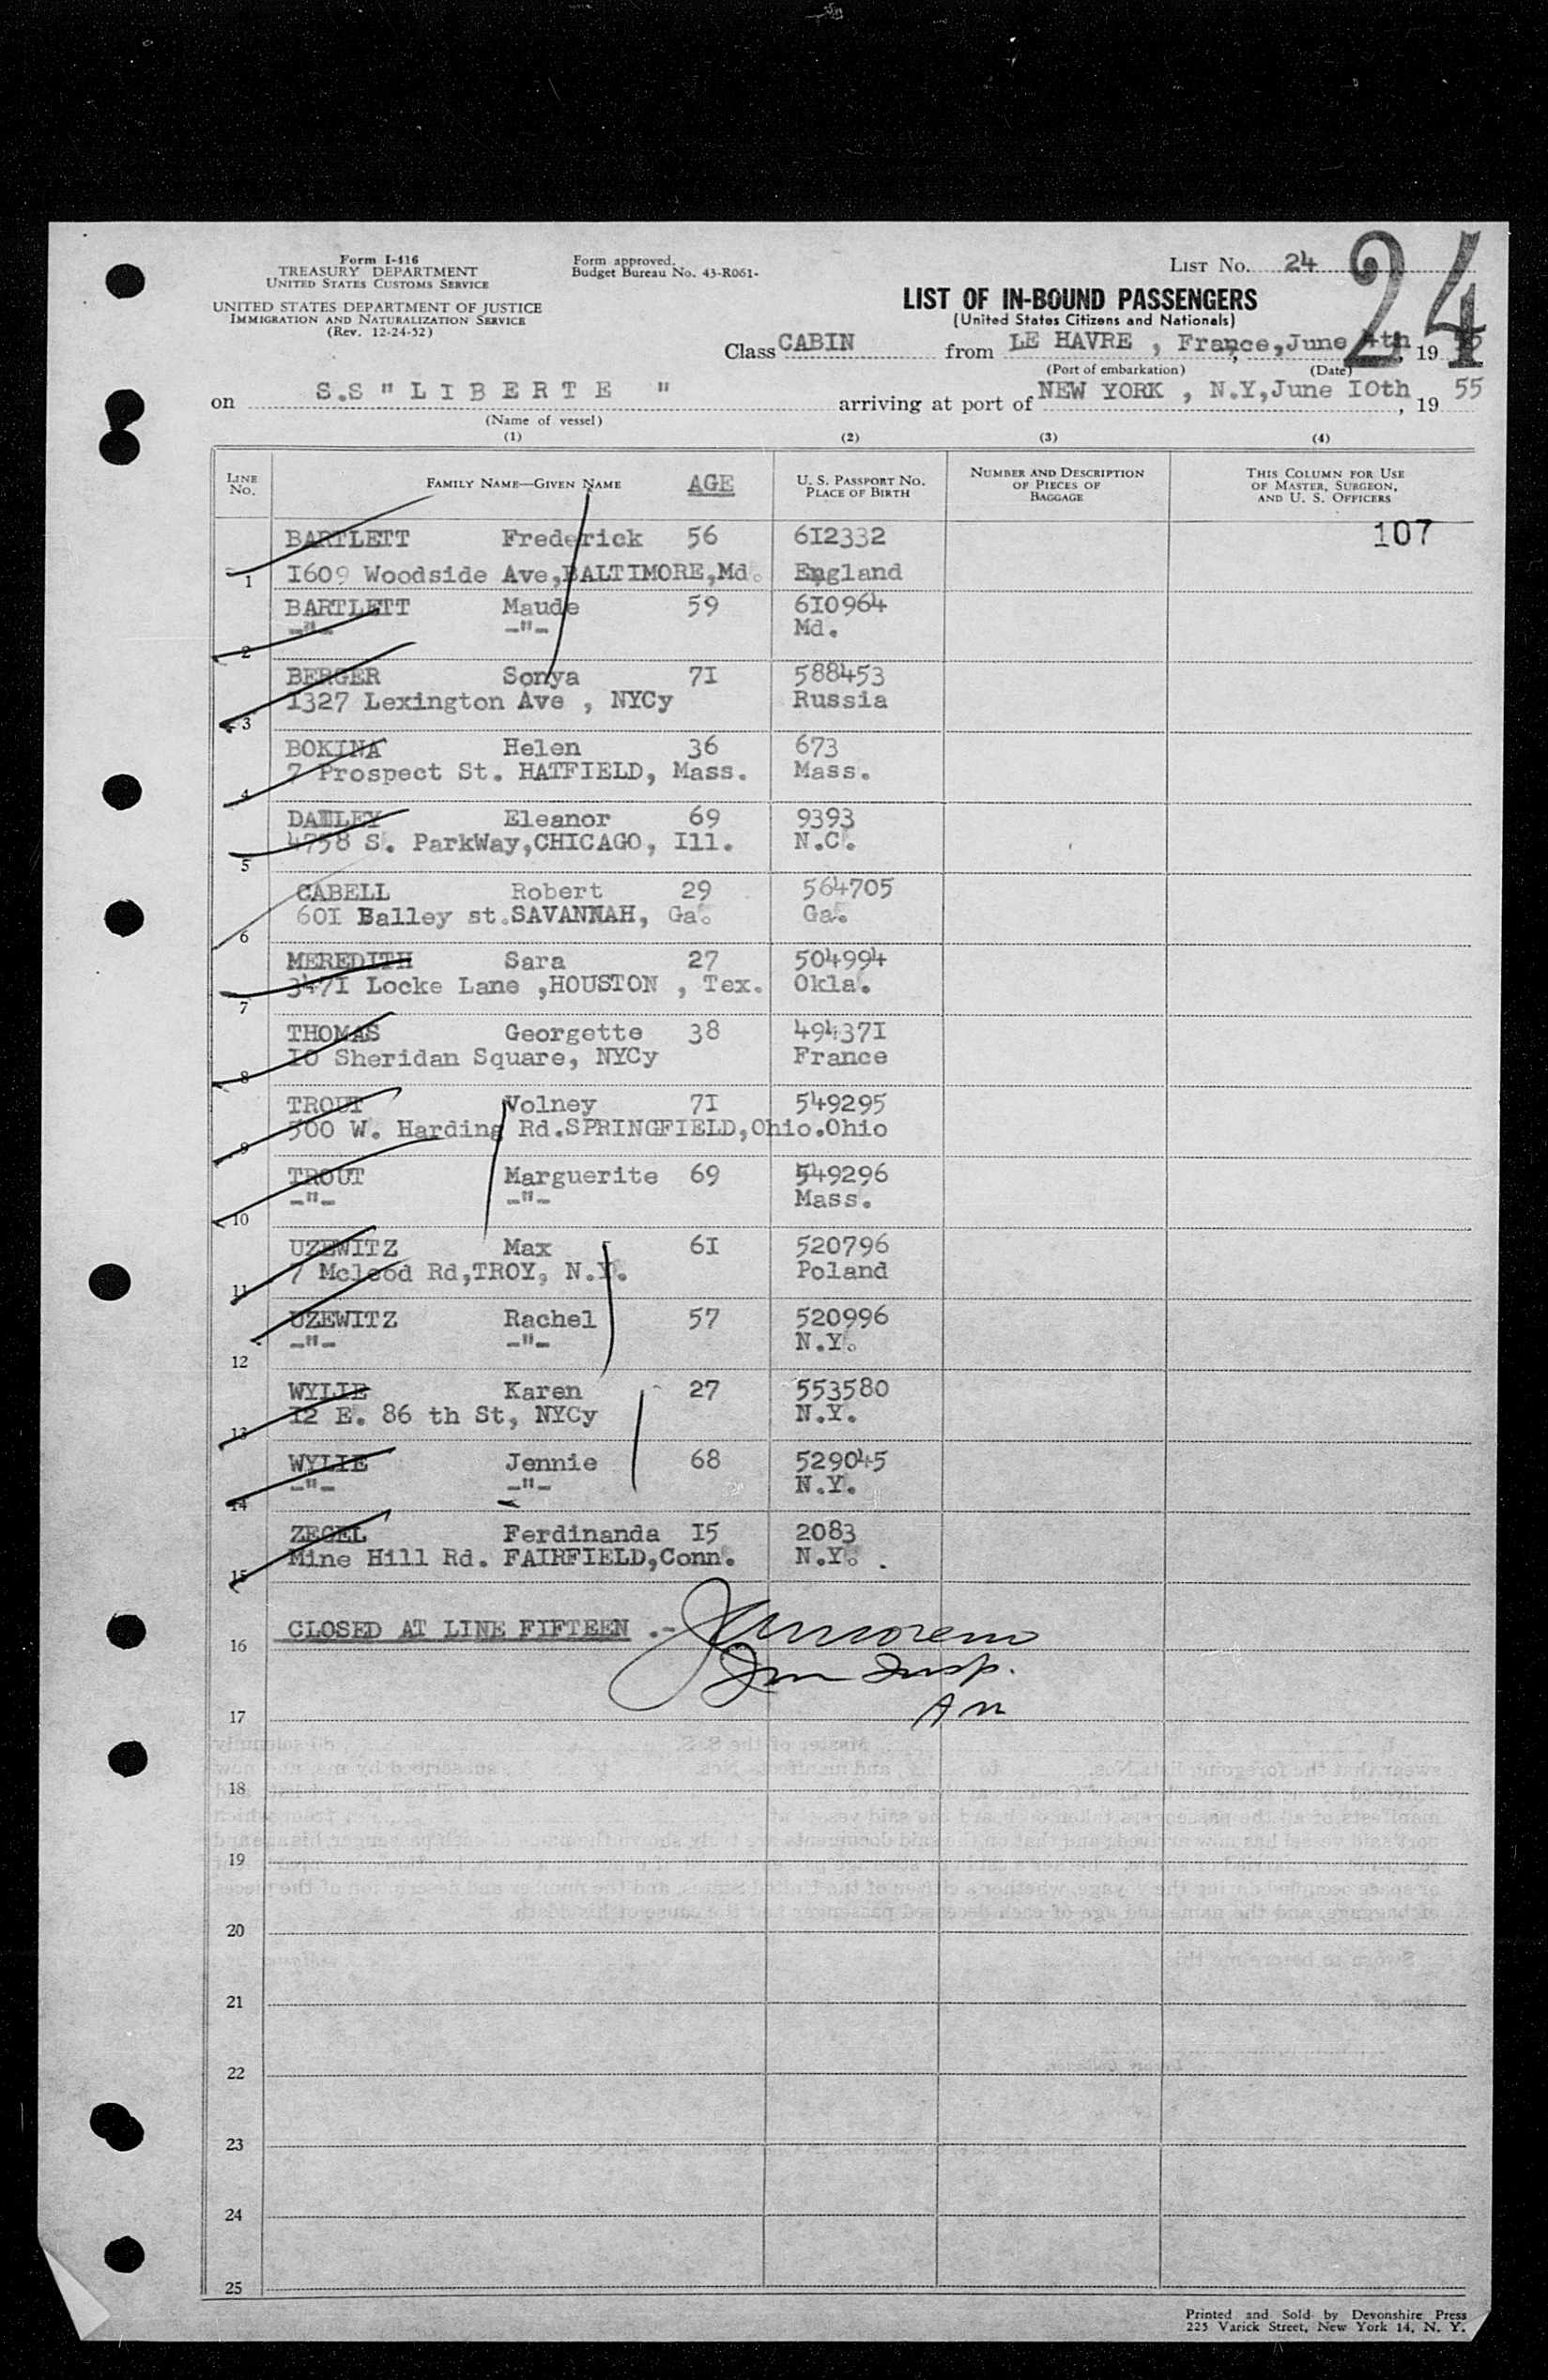 Form I-416
TREASURY DEPARTMENT
UNITED STATES CUSTOMS SERVICE
UNITED STATES DEPARTMENT OF JUSTICE
IMMIGRATION AND NATURALIZATION SERVICE
(Rev. 12-24-52)
Form approved.
Budget Bureau No. 43-R061-
LIST NO. 24
24
LIST OF IN-BOUND PASSENGERS
(United States Citizens and Nationals)
Class CABIN from LE HAVRE , France, June 4th, 19
(Port of embarkation) (Date)
on S.S " L I B E R T E " arriving at port of NEW YORK , N.Y, June I0th, 19 55
(Name of vessel)
(1) (2) (3) (4)
LINE NO. FAMILY NAME—GIVEN NAME AGE U. S. PASSPORT NO. PLACE OF BIRTH NUMBER AND DESCRIPTION OF PIECES OF BAGGAGE THIS COLUMN FOR USE OF MASTER, SURGEON, AND U. S. OFFICERS
BARTLETT Frederick 56 6I2332 107
1 I609 Woodside Ave,BALTIMORE,Md. England
BARTLETT Maude 59 6I0964
-"- -"- Md.
2
BERGER Sonya 7I 588453
I327 Lexington Ave , NYCy Russia
3
BOKINA Helen 36 673
7 Prospect St. HATFIELD, Mass. Mass.
4
Eleanor 69 9393
4758 S. ParkWay,CHICAGO, Ill. N.C.
5
CABELL Robert 29 564705
60I Balley st.SAVANNAH, Ga. Ga.
6
MEREDITH Sara 27 504994
347I Locke Lane ,HOUSTON , Tex. Okla.
7
THOMAS Georgette 38 49437I
I0 Sheridan Square, NYCy France
8
TROUT Volney 7I 549295
500 W. Harding Rd.SPRINGFIELD,Ohio.Ohio
9
TROUT Marguerite 69 549296
-"- -"- Mass.
10
UZEWITZ Max 6I 520796
7 Mcleod Rd,TROY, N.Y. Poland
11
UZEWITZ Rachel 57 520996
-"- -"- N.Y.
12
WYLIE Karen 27 553580
I2 E. 86 th St, NYCy N.Y.
13
WYLIE Jennie 68 529045
-"- -"- N.Y.
14
ZEGEL Ferdinanda I5 2083
Mine Hill Rd. FAIRFIELD,Conn. N.Y.
15
16 CLOSED AT LINE FIFTEEN .-
Imm Insp.
17
18
19
20
21
22
23
24
25
Printed and Sold by Devonshire Press
225 Varick Street, New York 14, N. Y.